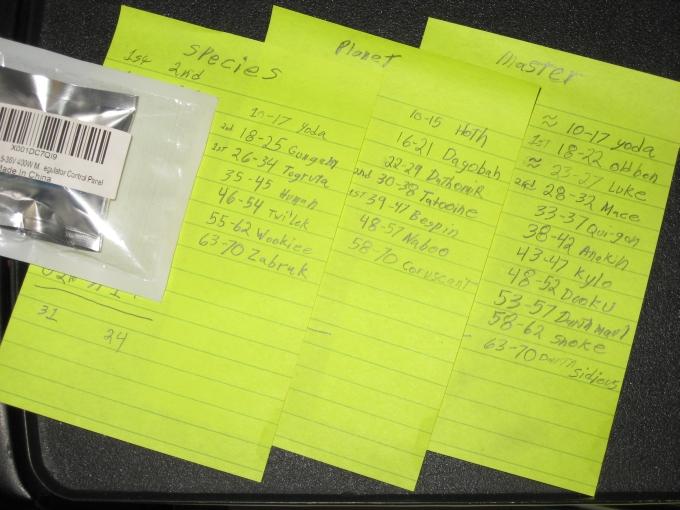 Species
1st 2nd
10-17 Yoda
2nd 18-25 Gungam
1st 26-34 Togruta
35-45 Human
46-54 Twi'lek
55-62 Wookiee
63-70 Zabrak
31
24
X001DC7QI9
5-36V 400W M egulator Control Panel
Made In China
Planet
10-15 Hoth
16-21 Dagobah
22-29 DathomiR
2nd 30-38 Tatooine
1st 39-47 Bespin
48-57 Naboo
58-70 Coruscant
Master
≈ 10-17 yoda
1st 18-22 obi ben
≈ 23-27 Luke
2nd 28-32 Mace
33-37 Qui-gon
38-42 Anakin
43-47 Kylo
48-52 Dooku
53-57 Darth maul
58-62 snoke
63-70 Darth Sidious